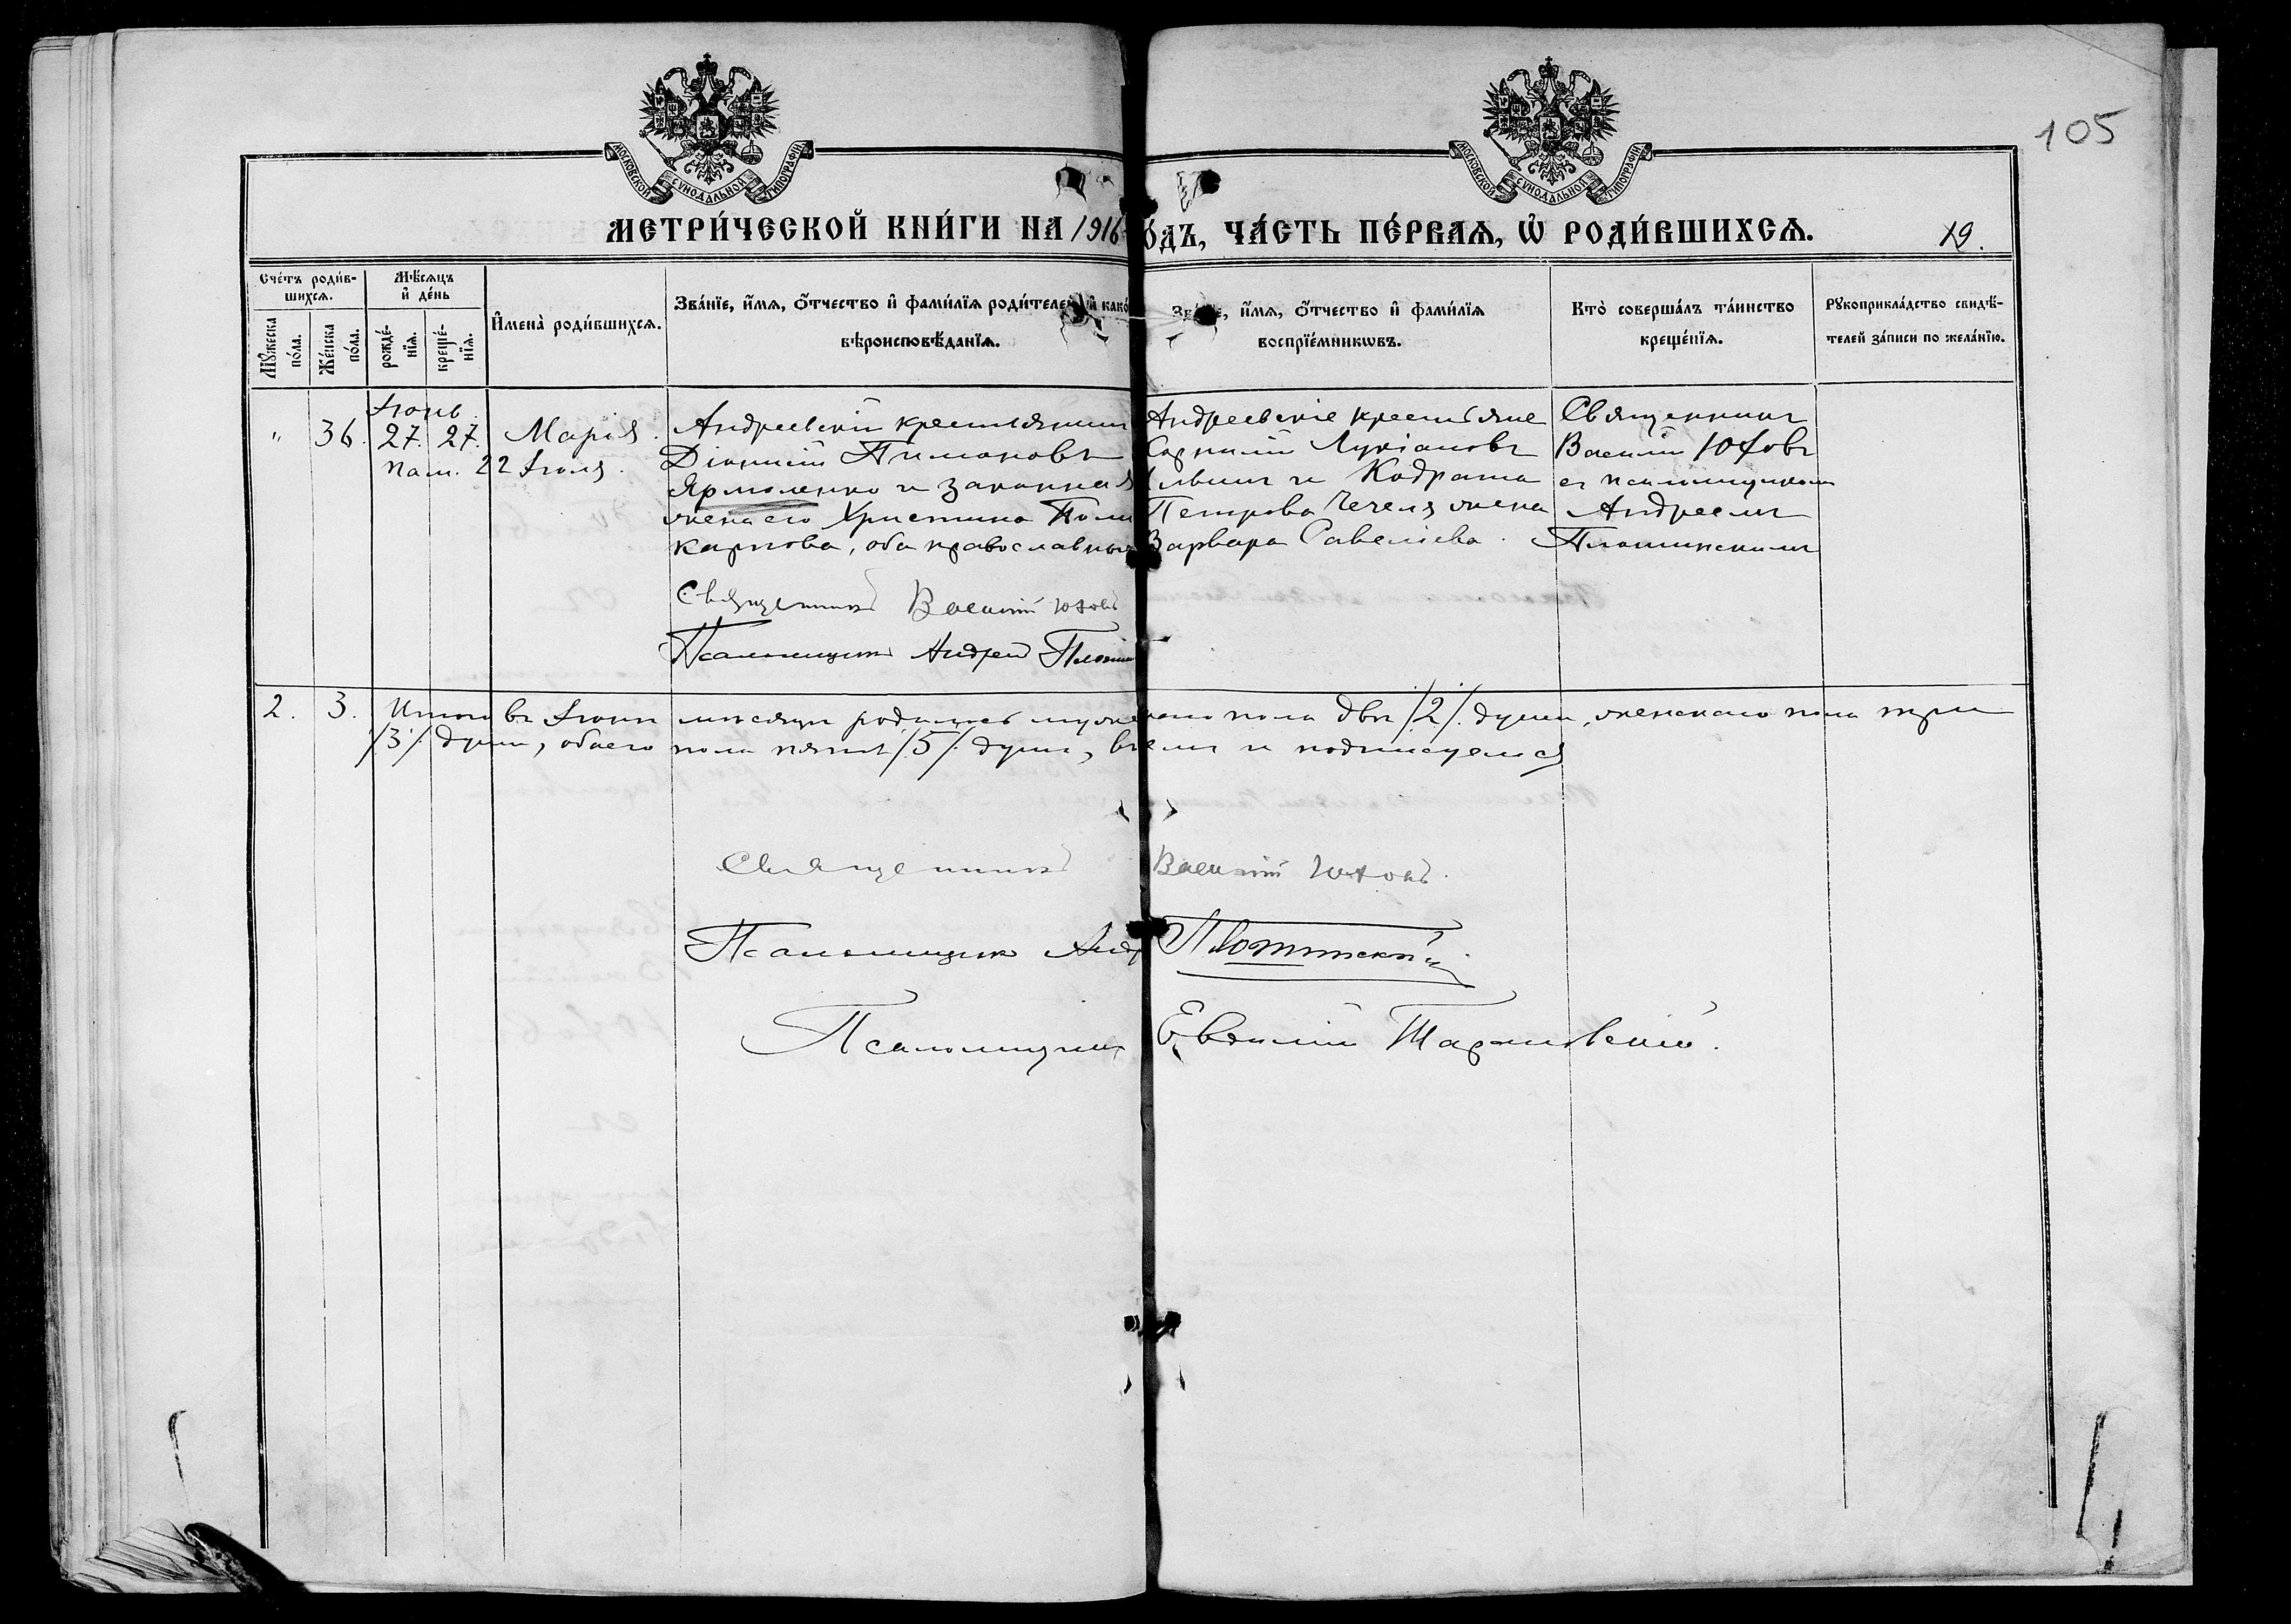 105
МОСКОВСКОЙ СѴНОДАЛЬНОЙ ТИПОГРАФІИ
МОСКОВСКОЙ СѴНОДАЛЬНОЙ ТИПОГРАФІИ
МЕТРИ́ЧЕСКОЙ КНИ́ГИ НА 1916 ГО́ДЪ, ЧА́СТЬ ПЕ́РВАЯ, Ѡ҆ РОДИ́ВШИХСЯ. 19.
Сче́тъ роди́в-
шихсѧ.
Мꙋ́жеска по́ла.
Же́нска по́ла.
Мѣ́сѧцъ и҆ де́нь
рожде́-нїѧ.
креще́-нїѧ.
И҆мена̀ роди́вшихсѧ.
Зва́нїе, и҆́мѧ, о҆́тчество и҆ фами́лїѧ роди́телей и҆ како́
вѣроисповѣ́данїѧ.
Зва́нїе, и҆́мѧ, о҆́тчество и҆ фами́лїѧ
воспрїе́мникѡвъ.
Кто̀ соверша́лъ та́инство
креще́нїѧ.
Рꙋкоприкла́дство свидѣ́-
телей за́писи по жела́нїю.
Іюнь
" 36. 27. 27. Марія.
Пам. 22 Іюля.
Андреевскій крестьянинъ
Діонисій Пимоновъ
Ярмоленко и законная
жена его Христина Поли
карпова, оба православные
Священникъ Василій Юховъ
Псаломщикъ Андрей
Андреевскіе крестьяне
Лукіановъ
и Кодрата
Петрова Чечеля жена
Варвара Савеліева.
Священникъ
Василій Юховъ
съ псаломщикомъ
Андреемъ
Плотинскимъ
2. 3. Итого въ Іюнѣ мѣсяцѣ родилось мужескаго пола двѣ /2/ души, женскаго пола три
/3/ души, обоего пола пять /5/ душъ, въ чемъ и подписуемся
Священникъ Василій Юховъ.
Псаломщикъ Андр Плотинскій
Псаломщикъ Евѳимій Тарновскій.